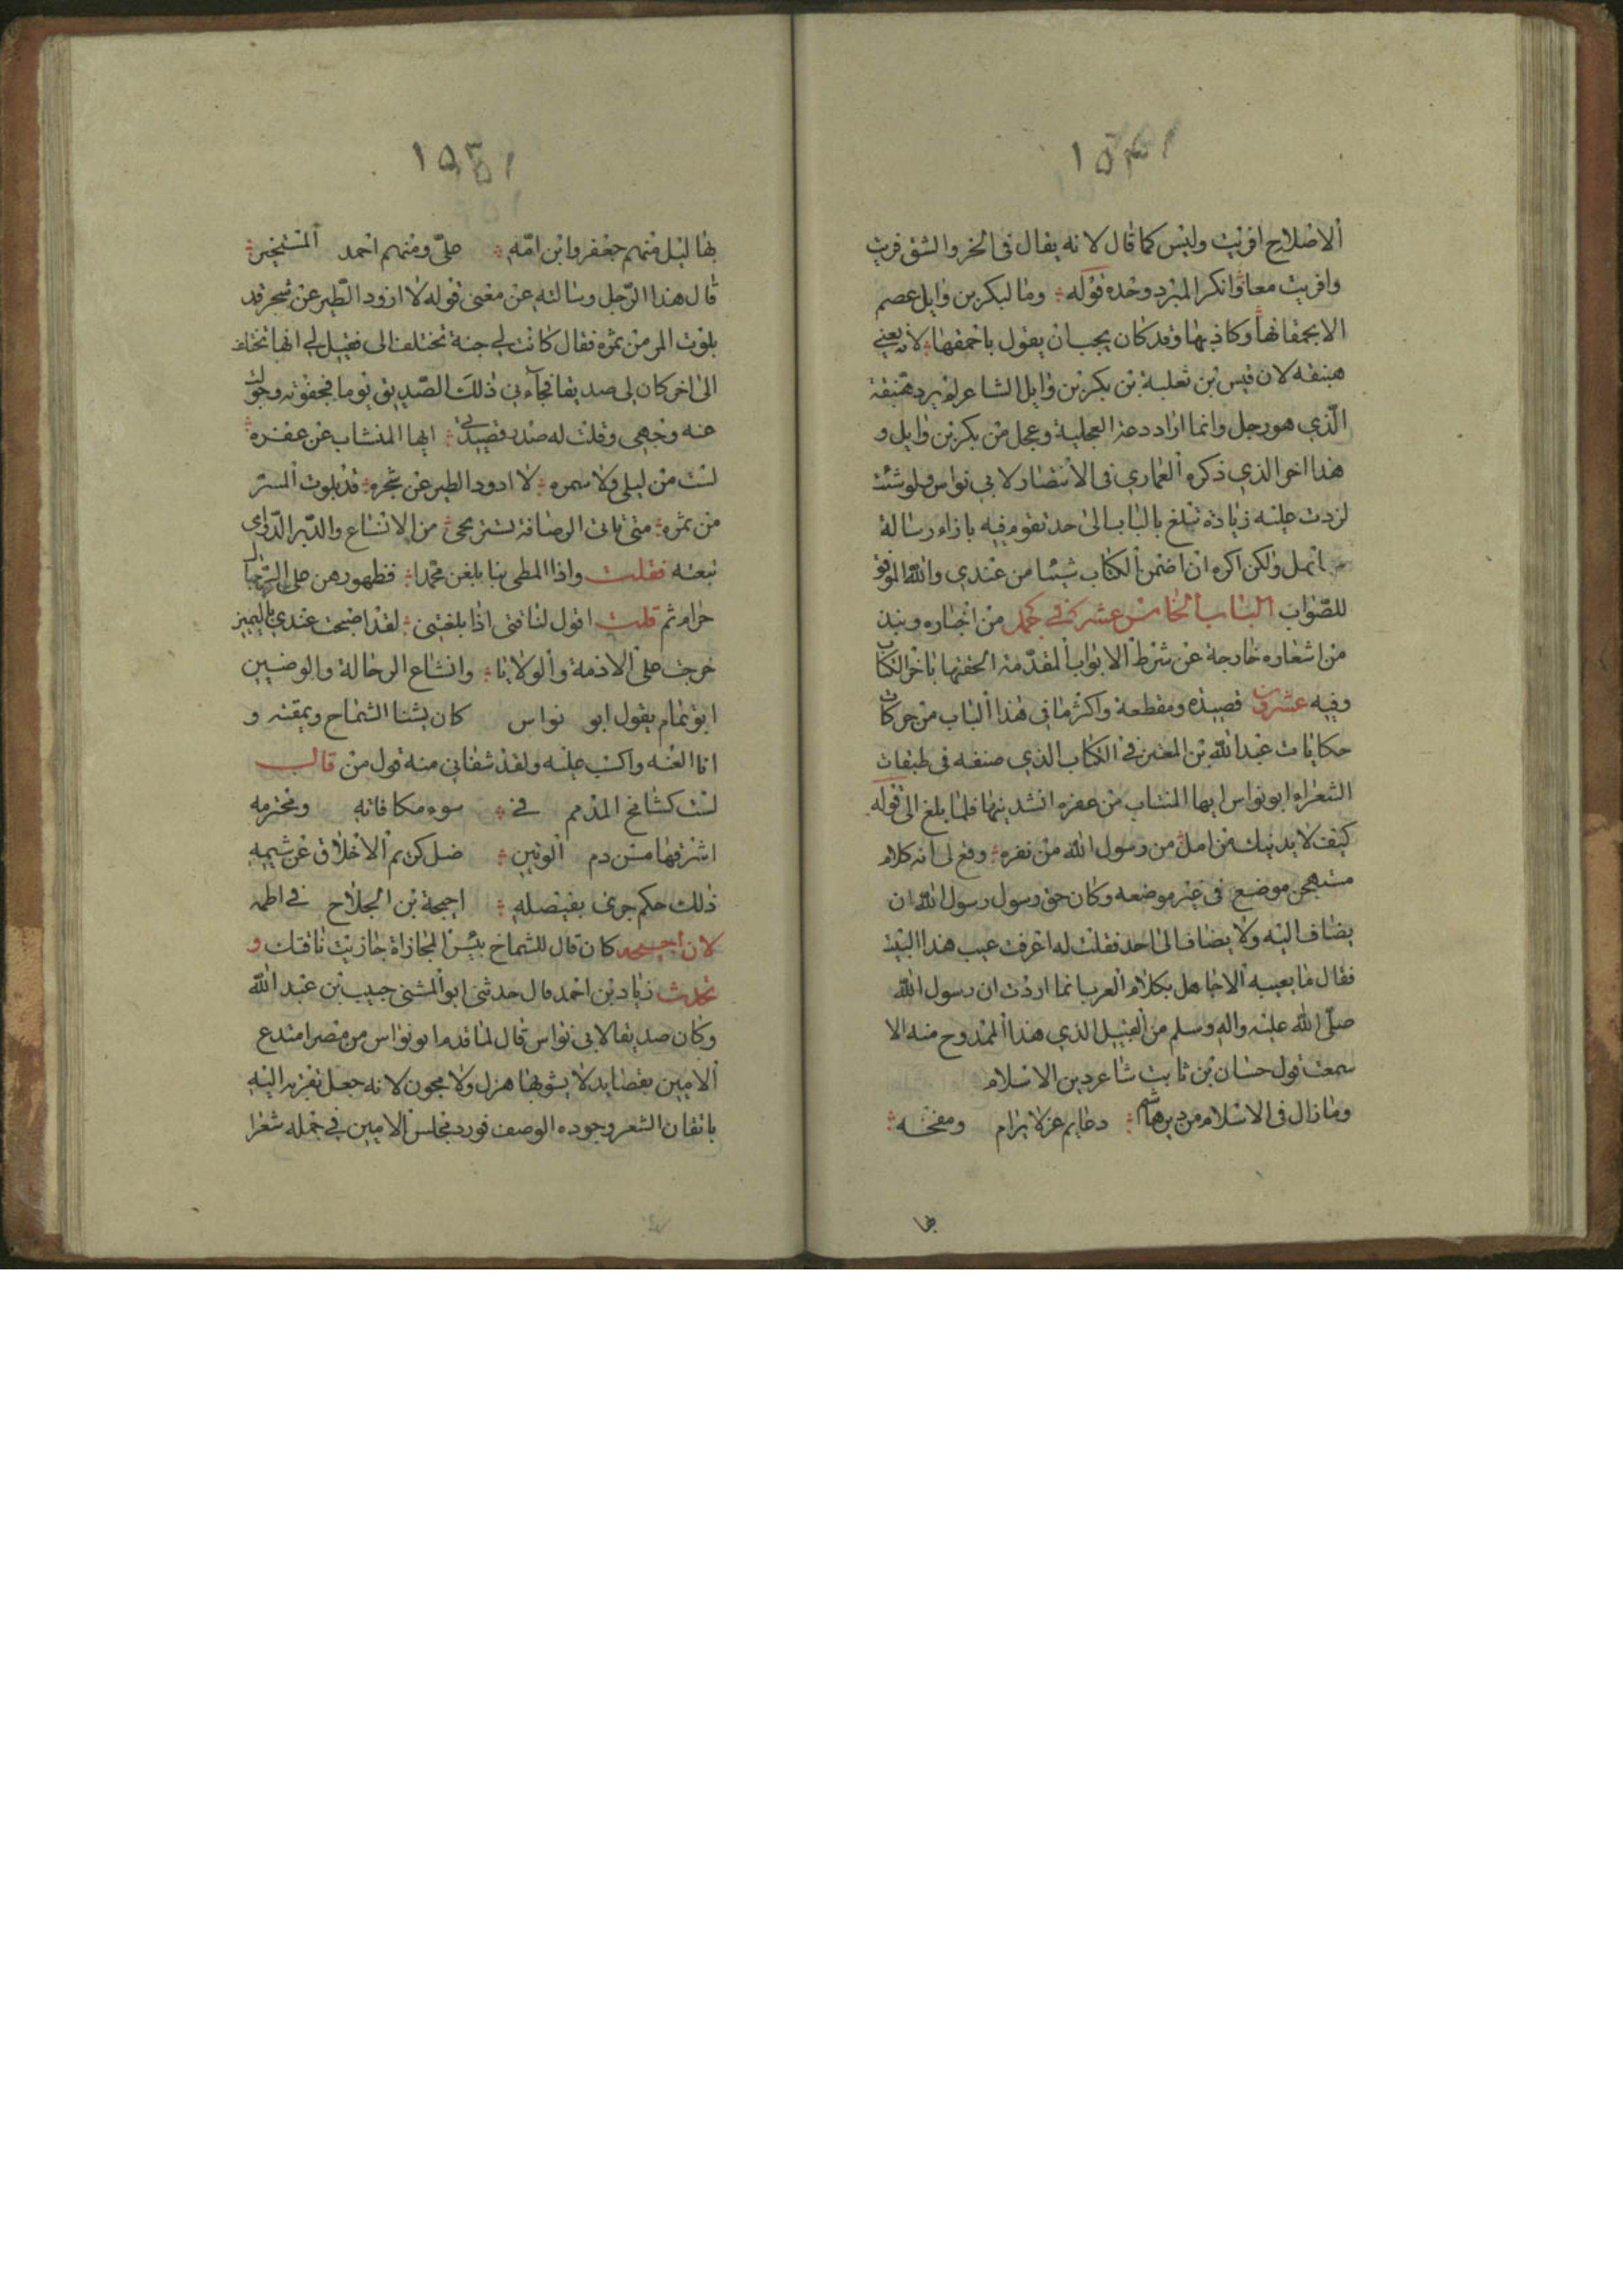 ١٥٣١
الاصلاح افريت وليس كما قال لانه يقال فى الخر والشق فريت
وافريت معا وانكر المبرد وحده قوله وما لبكر بن وايل عصم
الا بحمقائها وكاذبها وقد كان يجب ان يقول باحمقها لانه يعنى
هبنقه لان قيس بن ثعلبة بن بكر بن وايل الشاعر لم يرد هبنقة
الّذي هو رجل وانما اراد دعة العجلية وعجل من بكر بن وايل و
هذا اخر الذي ذكره العماري فى الانتصار لابي نواس ولو شئت
لزدت عليه زيادة تبلغ بالباب الى حد تقوم فيه بازاء رسالة
ولكن اكره ان اضمن الكتاب شيئا من عندي والله الموفق
للصّواب الباب الخامس عشر في جمل من اخباره ونبذ
من اشعاره خارجة عن شرط الابواب المقدّمة الحقتها باخر الكتاب
وفيه عشرون قصيدة ومقطعة واكثر ما في هذا الباب من
حكايات عبد الله بن المعتز في الكتاب الذي صنفه فى طبقات
الشعراء ابو نواس ايها المنتاب من عفره انشدنيها فلما بلغ الى قوله
كيف لا يدنيك من امل من رسول الله من نفره وقع لى انه كلام
مستهجن موضع فى غير موضعه وكان حق رسول رسول الله ان
يضاف اليه ولا يضاف الى احد فقلت له اعرفت عيب هذا البيت
فقال ما يعيبه الا جاهل بكلام العرب انما اردت ان رسول الله
صلّى الله عليه واله وسلم من القبيل الذي هذا الممدوح منه الا
سمعت قول حسان بن ثابت شاعر دين الاسلام
وما زال فى الاسلام من دين هاشم دعايم عز لا يرام ومفخه
بها
١٥٣١
بها ليل منهم جعفر وابن امّه علىّ ومنهم احمد المتخير
قال هذا الرّجل وسالته عن معنى قوله لا اذود الطّير عن شجر قد
بلوت المر من ثمره فقال كانت لي جنة تختلف الى فقيل لي انها تختلف
الى اخر كان لى صديقا فجآءني ذلك الصّديق يوما فجفوته وحولت
عنه وجهى وقلت له صدر قصيدتي ايها المنتاب عن عفره
لست من ليلى ولا سمره لا اذود الطير عن شجره قد بلوت المر
من ثمره متى تاتى الرصافة تستريحى من الانساع والدّبر الدّوامى
تبعته فقلت واذا المطى بنا بلغن محمدا فظهورهن على الرحال
حرام ثم قلت اقول لناقتى اذا بلغتنى لقد اصبحت عندي باليمين
حرجت على الازمة والولايا وانساع الرحالة والوضين
ابو تمام يقول ابو نواس كان يشنا الشماخ ويمقته و
انا العنه واكتب عليه ولقد شفانى منه قول من قال
لست كشامخ المذمم في سوء مكافاته ومجترمه
اشرقها من دم الوتين ضل كريم الاخلاق عن شيمه
ذلك حكم جرى بفيصله احيحة بن الجلاح في اطمه
لان احيحه كان قال للشماخ بئس المجازاة جازيت ناقتك و
تحدث زياد بن احمد قال حدثنى ابو المشنى حبيب بن عبد الله
وكان صديقا لابى نواس قال لما قدم ابو نواس من مصر امتدح
الامين بقصايد لا يشوبها هزل ولا مجون لانه جعل اليه
باتقان الشعر وجوده الوصف فورد مجلس الامين في جمله شعرا